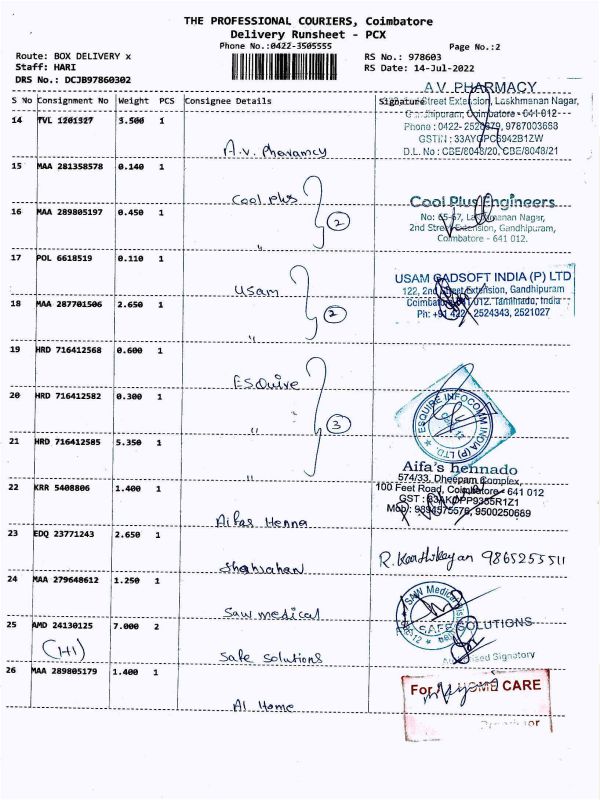 THE PROFESSIONAL COURIERS, Coimbatore
Delivery Runsheet - PCX
Phone No.:0422-3505555
Page No.:2
Route: BOX DELIVERY x
RS No.: 978603
Staff: HARI
RS Date: 14-Jul-2022
DRS No.: DCJB97860302
S No Consignment No Weight PCS Consignee Details Signature
A.V. PHARMACY
Street Extension, Laskhmanan Nagar,
Coimbatore - 641 012
14 TVL 1201327 3.500 1
Phone : 0422- 9787003668
GSTIN : 33AYGPC8942B1ZW
D.L. No : CBE/8048/20, CBE/8048/21
A.v. Pharamcy
15 MAA 281358578 0.140 1
Cool plus
Cool Plus Engineers
16 MAA 289805197 0.450 1
2
No: 65-67, Nagar,
2nd Street Extension, Gandhipuram,
Coimbatore - 641 012.
"
17 POL 6618519 0.110 1
Usam
USAM CADSOFT INDIA (P) LTD
122, 2nd Street Extension, Gandhipuram
18 MAA 287701506 2.650 1
2
Coimbatore 641 012. Tamilnadu, India
Ph: +91 422 2524343, 2521027
"
19 HRD 716412568 0.600 1
ESQuire
20 HRD 716412582 0.300 1
"
3
ESQUIRE INFOCOMM INDIA (P) LTD.
21 HRD 716412585 5.350 1
"
Aifa's hennado
574/33, Dheepam Complex,
22 KRR 5408806 1.400 1
100 Feet Road, Coimbatore - 641 012
GST : 33AKDPP9355R1Z1
Mob: 9894575576, 9500250669
Aifas Henna
23 EDQ 23771243 2.650 1
Shahjahan
R. Karthikeyan 9865255511
24 MAA 279648612 1.250 1
Saw medical
SAW Medical
25 AMD 24130125 7.000 2
SAFE SOLUTIONS
(HI)
Safe Solutions
Authorised Signatory
26 MAA 289805179 1.400 1
For HOME CARE
A1 Home